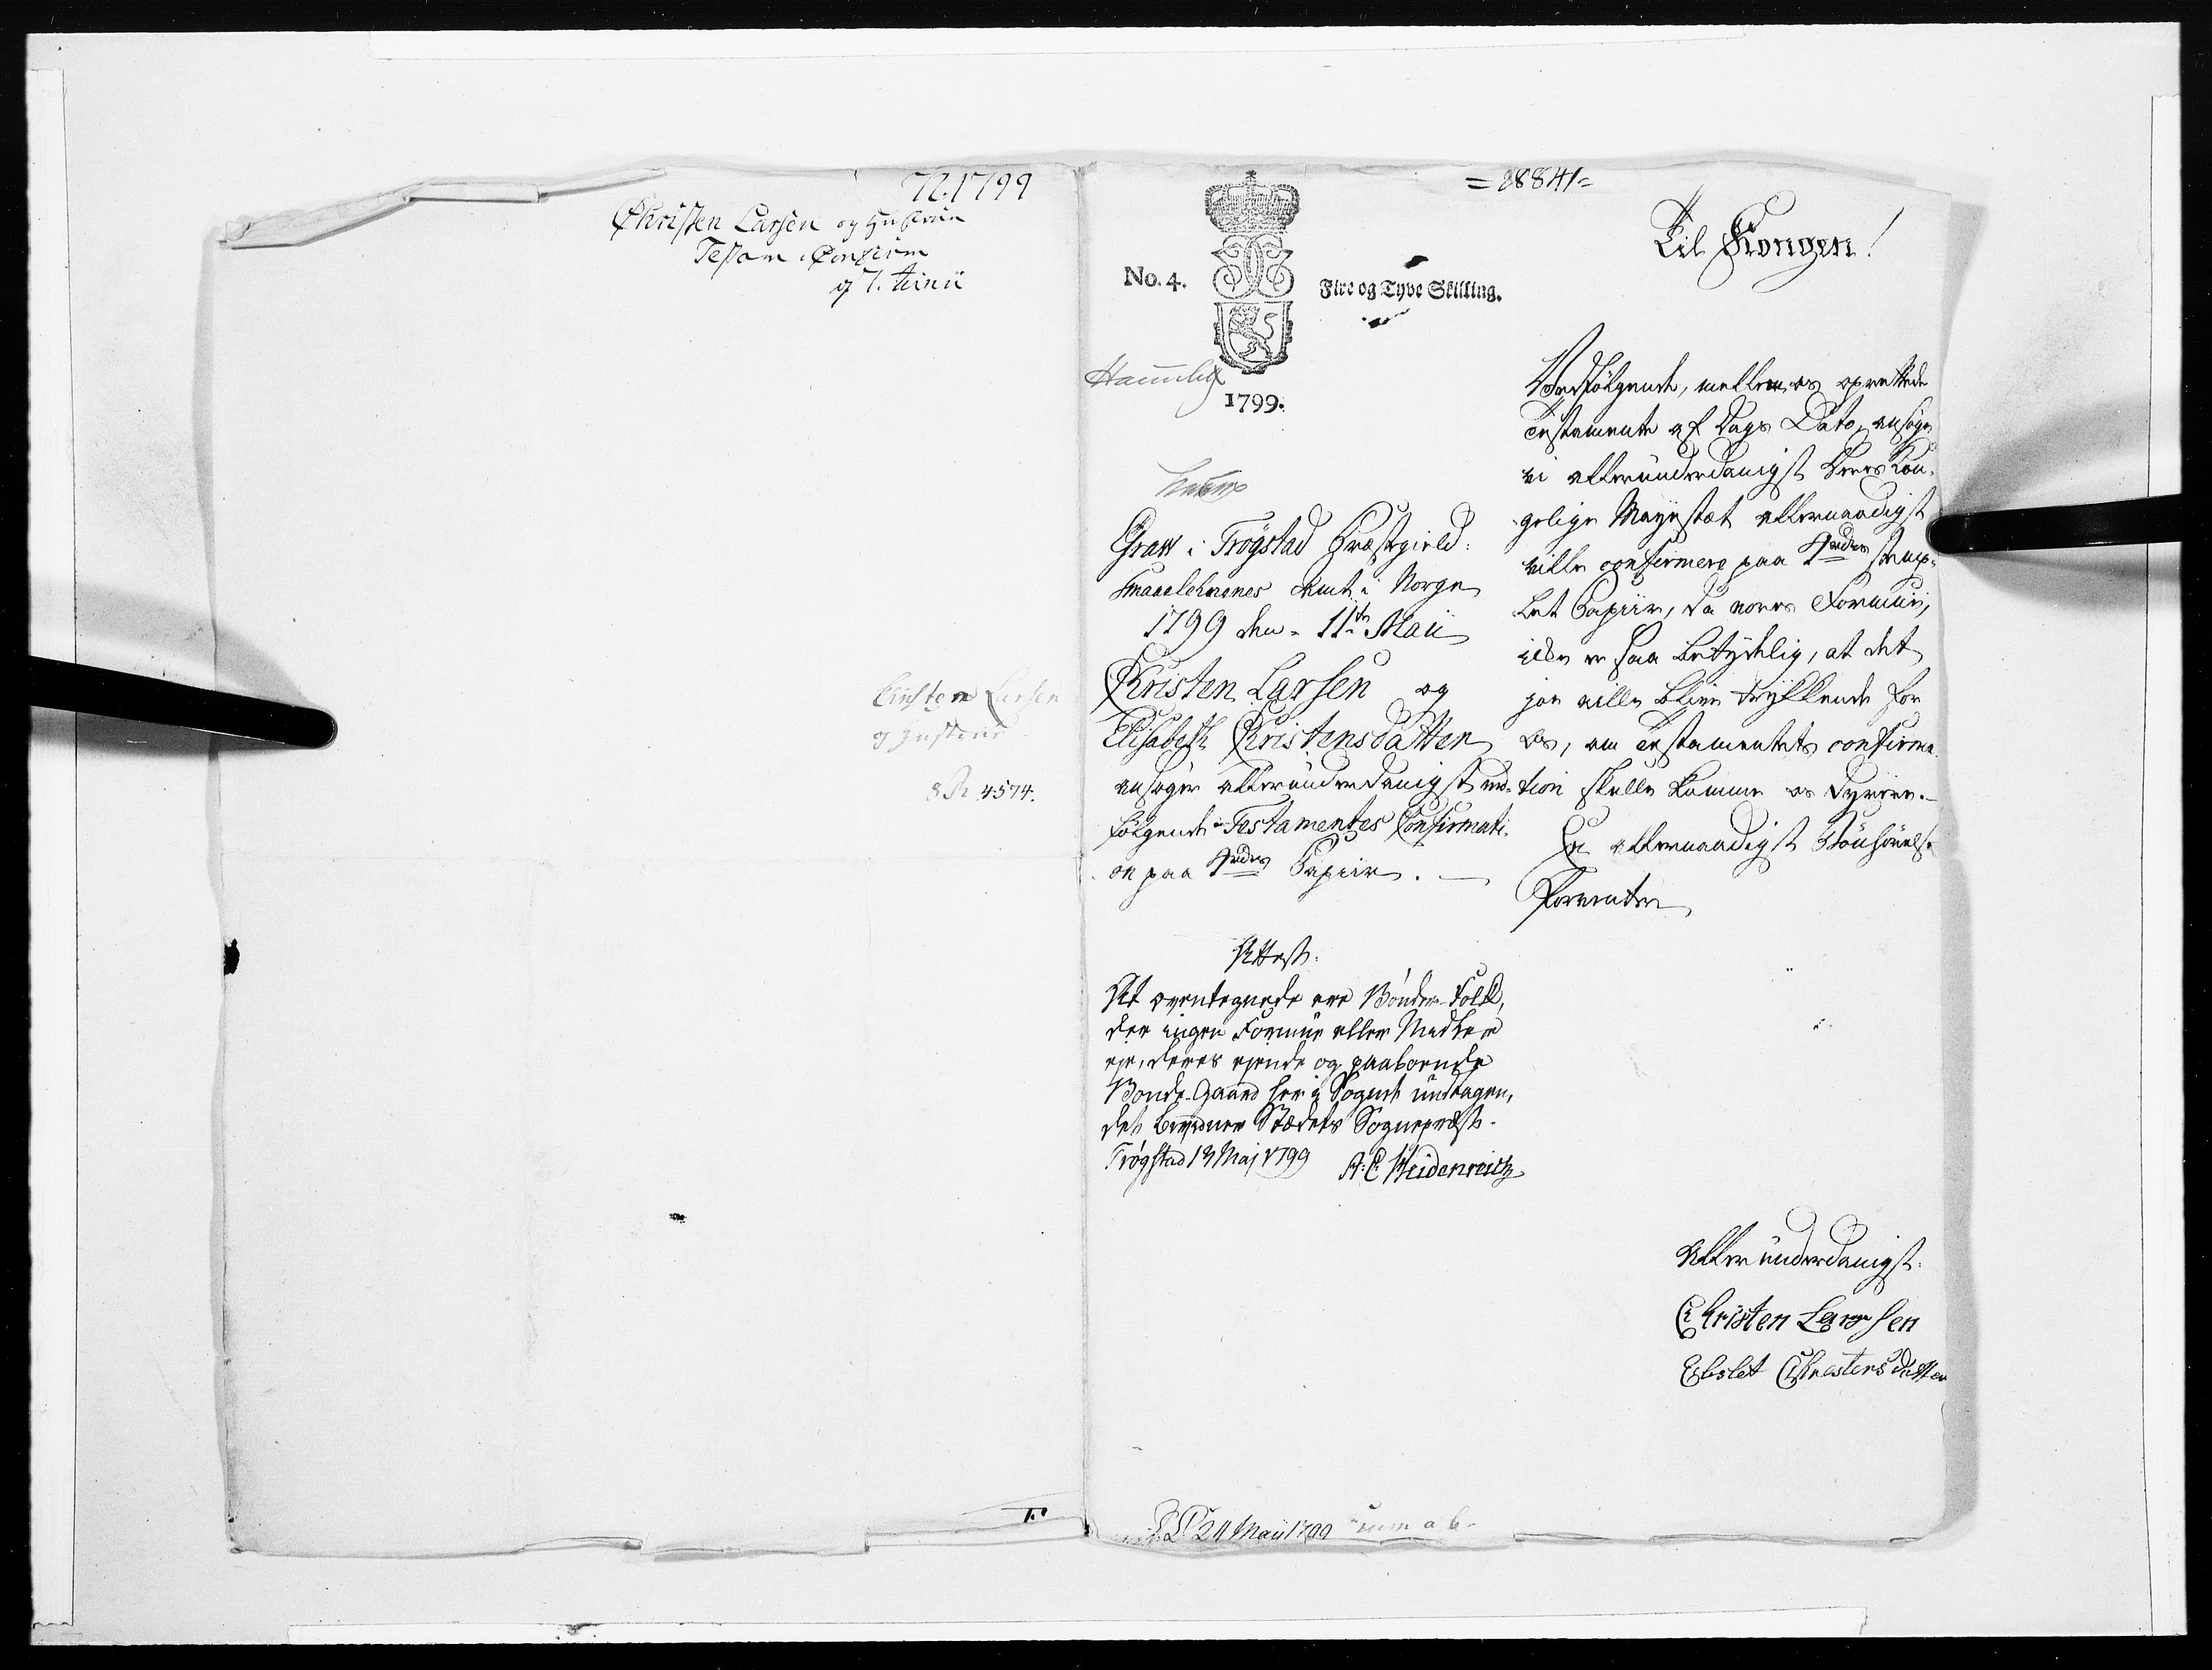 72.1799
Christen Larsen og Hustrue
Testam: Confirm
af 7. Junii
Christen Larsen
og Hustrue
4574.
=28841=
No. 4.
Fire og Tyve Skilling.
1799.
Graw i Trøgstad Præstegield
Smaalehnenes Amt i Norge
1799 den 11te Maii
Christen Larsen og
Elisabeth Christensdatter
ansøger allerunderdanigst ved-
følgende Testamentes Confirmati-
on paa 4rdes Papiir.
Attest:
At ovenbegnede ere Bønder-Folk,
der ingen Formue eller Midler
eje, deres ejende og paaboende
Bonde-Gaard her i Sognet undtagen,
det bevidner Stædets Sognepræst.
Trøgstad 13 Maj 1799 A: C Heidenreich
24 Maii 1799
Til Kongen!
Vedfølgende, mellem os oprettede
Testamente af Dags Dato, ansøge
vi allerunderdanigst Deres Kon-
gelige Mayestæt allernaadigst
ville confirmere paa 4rdes stemp-
let Papiir, da vores Formue,
ikke er saa betydelig, at det
joe ville blive trykkende for
Os, om Testamentets confirma-
tion skulle komme os dyrere.
En allernaadigst Bønhørelse
forventer
Allerunderdanigst.
Christen Larsen
Elesbet Chrestensdatter